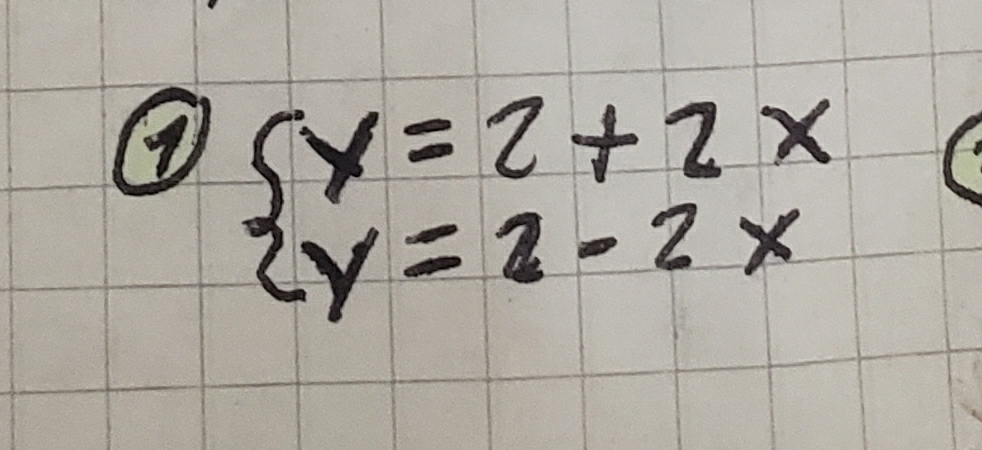 ① { y = 2 + 2x
{ y = 2 - 2x